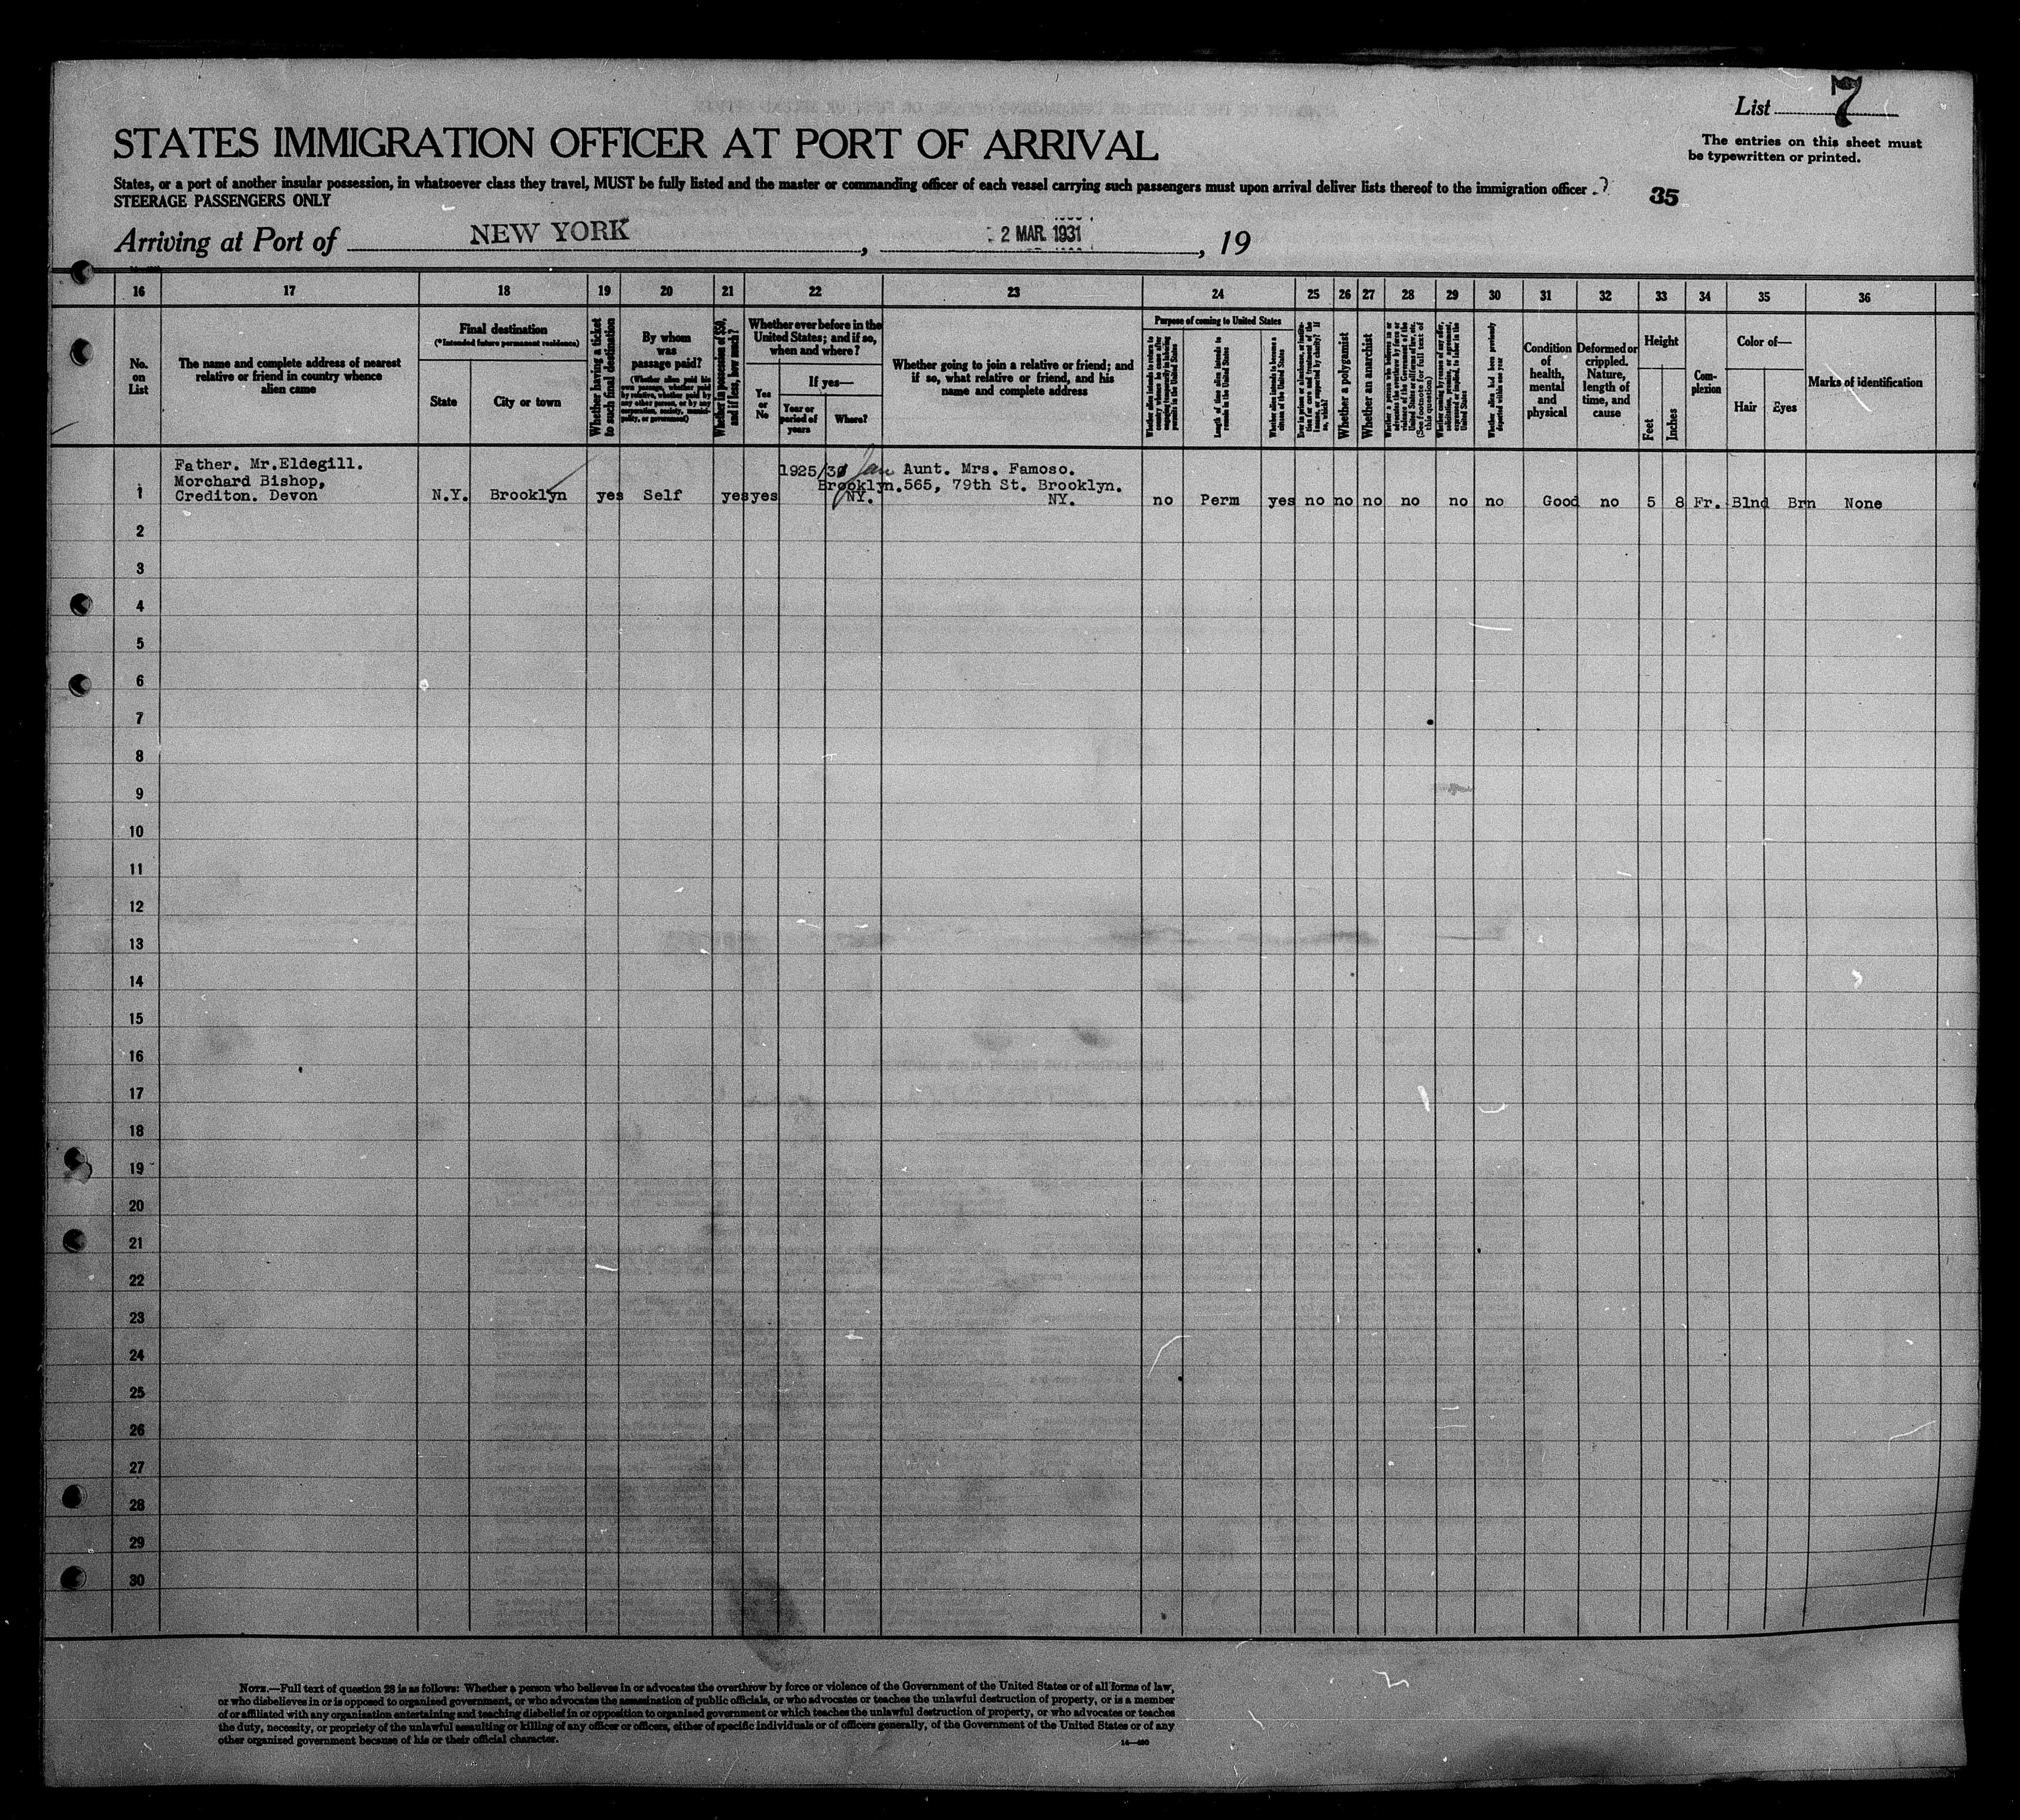 List 7
The entries on this sheet must
be typewritten or printed.
STATES IMMIGRATION OFFICER AT PORT OF ARRIVAL
States, or a port of another insular possession, in whatsoever class they travel, MUST be fully listed and the master or commanding officer of each vessel carrying such passengers must upon arrival deliver lists thereof to the immigration officer
STEERAGE PASSENGERS ONLY
35
Arriving at Port of NEW YORK, 2 MAR. 1931, 19
16 17 18 19 20 21 22 23 24 25 26 27 28 29 30 31 32 33 34 35 36
No.
on
List
The name and complete address of nearest
relative or friend in country whence
alien came
Final destination
(*Intended future permanent residence)
State
City or town
Whether having a ticket
to such final destination
By whom
was
passage paid?
(Whether alien paid his
own passage, whether paid
by relative, whether paid by
any other person, or by any
corporation, society, munici-
pality, or government)
Whether in possession of $50,
and if less, how much?
Whether ever before in the
United States; and if so,
when and where?
Yes
or
No
If yes—
Year or
period of
years
Where?
Whether going to join a relative or friend; and
if so, what relative or friend, and his
name and complete address
Purpose of coming to United States
Length of time alien intends to
remain in the United States
Whether alien intends to become a
citizen of the United States
Whether a polygamist
Whether an anarchist
Whether alien had been previously
deported within one year
Condition
of
health,
mental
and
physical
Deformed or
crippled.
Nature,
length of
time, and
cause
Height
Feet
Inches
Com-
plexion
Color of—
Hair
Eyes
Marks of identification
Father. Mr.Eldegill.
Morchard Bishop,
Crediton. Devon
1 N.Y. Brooklyn yes Self yes yes
1925/30 Jan
Brooklyn.
NY.
Aunt. Mrs. Famoso.
565, 79th St. Brooklyn.
NY.
no Perm yes no no no no no no Good no 5 8 Fr. Blnd Brn None
2
3
4
5
6
7
8
9
10
11
12
13
14
15
16
17
18
19
20
21
22
23
24
25
26
27
28
29
30
NOTE.—Full text of question 28 is as follows: Whether a person who believes in or advocates the overthrow by force or violence of the Government of the United States or of all forms of law,
or who disbelieves in or is opposed to organized government, or who advocates the assassination of public officials, or who advocates or teaches the unlawful destruction of property, or is a member
of or affiliated with any organization entertaining and teaching disbelief in or opposition to organized government or which teaches the unlawful destruction of property, or who advocates or teaches
the duty, necessity, or propriety of the unlawful assaulting or killing of any officer or officers, either of specific individuals or of officers generally, of the Government of the United States or of any
other organized government because of his or their official character.